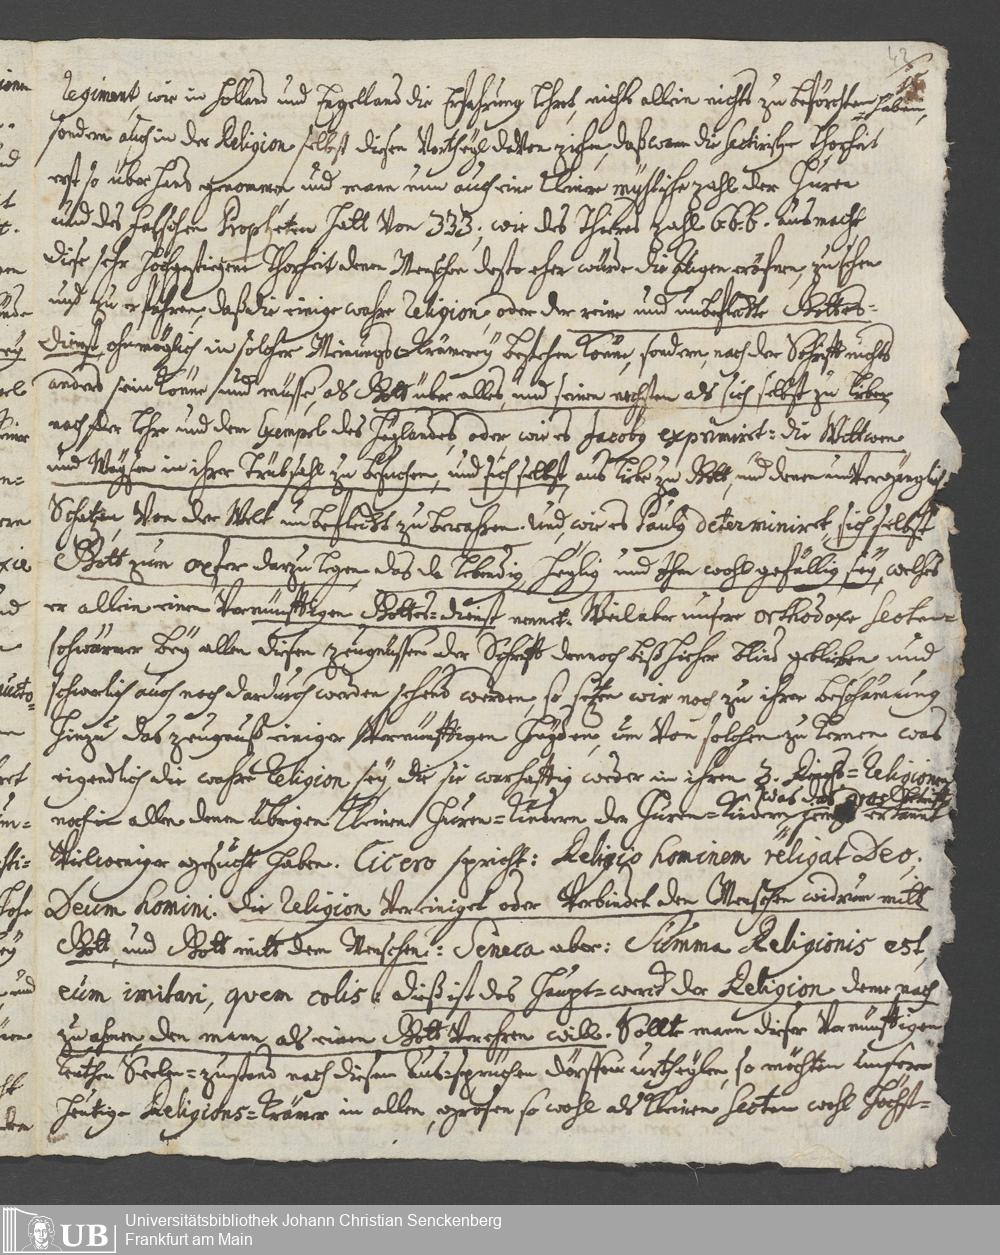 43
Regiment wie in Holland und Engelland die Erfahrung lehret, nichts allein nichts zu beförchten haben,
sondern auch in der Religion selbst diesen Vortheyl davon ziehen, daß wann die Sectirische Thorheit
erst so überhand genommen und mann nun auch eine kleine mystische zahl der Huren
und des falschen Propheten hatt von 333, wie des Thieres zahl 666. ausmacht
diese sehr hochgestiegene Thorheit denen Menschen desto eher würde die Augen eröfnen, zu sehen
und zu erfahren, daß die einige wahre Religion, oder der reine und unbefleckte Gottes-
dienst, ohnmöglich in solcher Meinungs-Krämerey bestehen könne, sondern, nach der Schrifft nichts
anders sein könne und müsse, als Gott über alles, und seinen nechsten als sich selbst zu lieben
nach der Lehre und dem Exempel des Heylandes, oder wie es Jacobus exprimiret: die Wittwen
und Waysen in ihrer Trübsahl zu besuchen, und sich selbst, aus liebe zu Gott, und denen unvergänglich
Schätzen, von der Welt unbefleckt zu bewahren. und, wie es Paulus determiniret, sich selbst
Gott zum opfer darzulegen, das da lebendig, heylig und Ihm wohl gefällig sey, welches
er allein einen vernünfftigen Gottes-dienst nennet. Weil aber unsere orthodoxe Secten-
schwärmer bey allen diesen zeugnüssen der Schrifft dennoch bißhieher blind geblieben und
schwerlich auch noch dardurch werden sehend werden, so setzen wir noch zu ihrer beschämung
hinzu das zeugnuß einiger vernünfftigen Heyden, um von solchen zu lernen, was
eigendlich die wahre Religion sey, die sie warhafftig weder in ihren 3. Reichs-Religionen
noch in allen denen übrigen kleinen Huren-Kindern der Huren-Kinder erkannt
Vielweniger gesucht haben. Cicero spricht: Religio hominem religat Deo,
Deum homini. die Religion vereiniget oder verbindet den Menschen widrum mitt
Gott, und Gott mitt dem Menschen: Seneca aber: Summa Religionis est,
eum imitari, quem colis: dieß ist das Haupt-werck der Religion deme nach
zu ahmen, den mann als einen Gott verehren will. Sollte mann dieser vernünftigen
Leuthen Seelen-zustand nach diesen Aus-sprüchen dörffen urtheylen, so möchten unsere
heutige Religions-Krämer in allen, grosen so wohl als kleinen Secten wohl höchst-
UB
Universitätsbibliothek Johann Christian Senckenberg
Frankfurt am Main